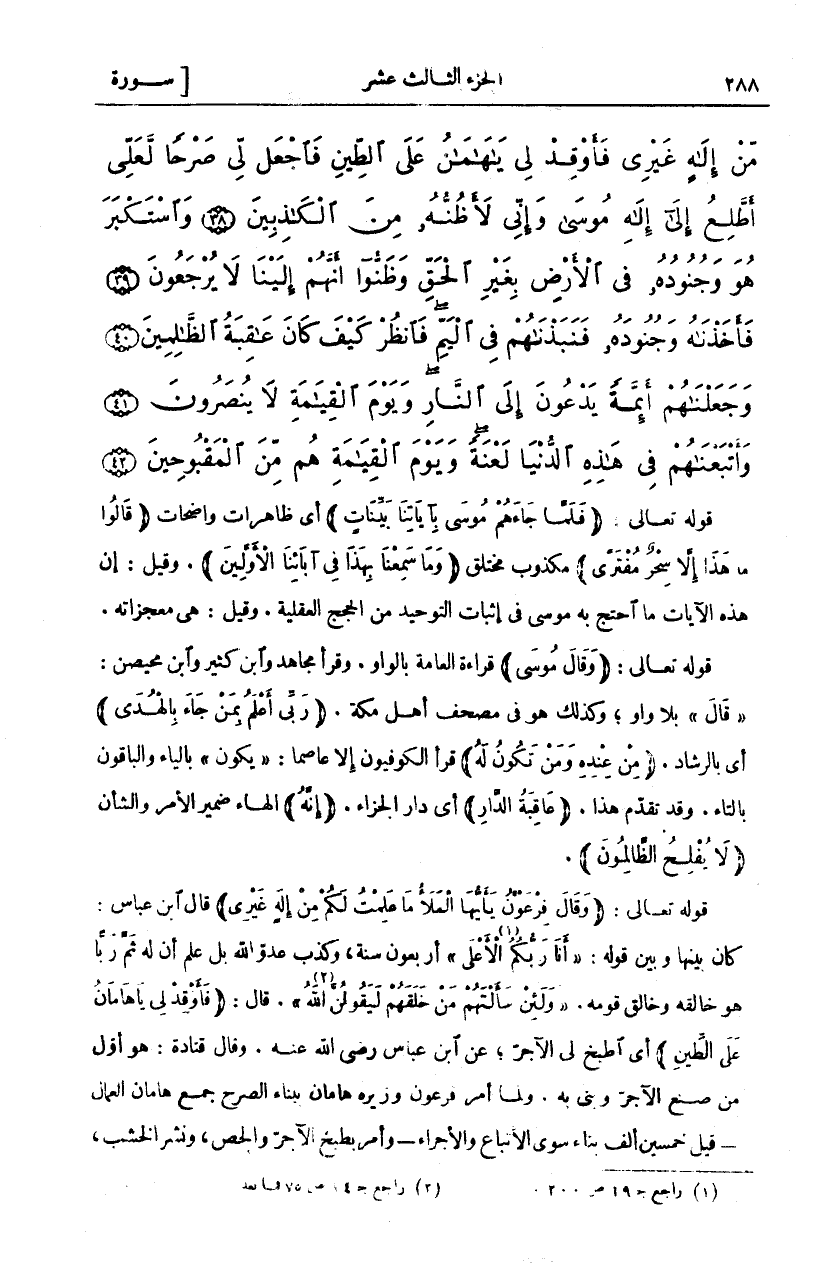 ٢٨٨ الجزء الثالث عشر [ سورة
مِّنْ إِلَٰهٍ غَيْرِى فَأَوْقِدْ لِى يَٰهَٰمَٰنُ عَلَى ٱلطِّينِ فَٱجْعَل لِّى صَرْحًا لَّعَلِّى
أَطَّلِعُ إِلَىٰٓ إِلَٰهِ مُوسَىٰ وَإِنِّى لَأَظُنُّهُۥ مِنَ ٱلْكَٰذِبِينَ ﴿٣٨﴾ وَٱسْتَكْبَرَ
هُوَ وَجُنُودُهُۥ فِى ٱلْأَرْضِ بِغَيْرِ ٱلْحَقِّ وَظَنُّوٓا۟ أَنَّهُمْ إِلَيْنَا لَا يُرْجَعُونَ ﴿٣٩﴾
فَأَخَذْنَٰهُ وَجُنُودَهُۥ فَنَبَذْنَٰهُمْ فِى ٱلْيَمِّ ۖ فَٱنظُرْ كَيْفَ كَانَ عَٰقِبَةُ ٱلظَّٰلِمِينَ ﴿٤٠﴾
وَجَعَلْنَٰهُمْ أَئِمَّةً يَدْعُونَ إِلَى ٱلنَّارِ ۖ وَيَوْمَ ٱلْقِيَٰمَةِ لَا يُنصَرُونَ ﴿٤١﴾
وَأَتْبَعْنَٰهُمْ فِى هَٰذِهِ ٱلدُّنْيَا لَعْنَةً ۖ وَيَوْمَ ٱلْقِيَٰمَةِ هُم مِّنَ ٱلْمَقْبُوحِينَ ﴿٤٢﴾
قوله تعالى : ﴿ فَلَمَّا جَاءَهُمْ مُوسَى بِآيَاتِنَا بَيِّنَاتٍ ﴾ أى ظاهرات واضحات ﴿ قَالُوا
مَا هَذَا إِلَّا سِحْرٌ مُفْتَرًى ﴾ مكذوب مختلق ﴿ وَمَا سَمِعْنَا بِهَذَا فِى آبَائِنَا الْأَوَّلِينَ ﴾ . وقيل : إن
هذه الآيات ما آحتج به موسى فى إثبات التوحيد من الحجج العقلية . وقيل : هى معجزاته .
قوله تعالى : ﴿ وَقَالَ مُوسَى ﴾ قراءة العامة بالواو . وقرأ مجاهد وآبن كثير وآبن محيصن :
« قَالَ » بلا واو ؛ وكذلك هو فى مصحف أهل مكة . ﴿ رَبِّى أَعْلَمُ بِمَنْ جَاءَ بِالْهُدَى ﴾
أى بالرشاد . ﴿ مِنْ عِنْدِهِ وَمَنْ تَكُونُ لَهُ ﴾ قرأ الكوفيون إلا عاصما : « يكون » بالياء والباقون
بالتاء . وقد تقدّم هذا . ﴿ عَاقِبَةُ الدَّارِ ﴾ أى دار الجزاء . ﴿ إِنَّهُ ﴾ الهاء ضمير الأمر والشأن
﴿ لَا يُفْلِحُ الظَّالِمُونَ ﴾ .
قوله تعالى : ﴿ وَقَالَ فِرْعَوْنُ يَأَيُّهَا الْمَلَأُ مَا عَلِمْتُ لَكُمْ مِنْ إِلَهٍ غَيْرِى ﴾ قال آبن عباس :
كان بينها و بين قوله : « أَنَا رَبُّكُمُ الْأَعْلَى (١) » أربعون سنة ، وكذب عدوّ الله بل علم أن له ثَمَّ رَبًّا
هو خالقه وخالق قومه . « وَلَئِنْ سَأَلْتَهُمْ مَنْ خَلَقَهُمْ لَيَقُولُنَّ اللهُ (٢) » . قال : ﴿ فَأَوْقِدْ لِى يَاهَامَانُ
عَلَى الطِّينِ ﴾ أى آطبخ لى الآجرّ ؛ عن آبن عباس رضى الله عنه . وقال قتادة : هو أوّل
من صنع الآجرّ وبنى به . ولما أمر فرعون وزيره هامان ببناء الصرح جمع هامان العمال
— قيل خمسين ألف بناء سوى الأتباع والأجراء — وأمر بطبخ الآجرّ والجص ، ونشر الخشب ،
(١) راجع جـ ١٩ ص ٢٠٠ . (٢) راجع جـ ١٤ ص ٧٥ فما بعد